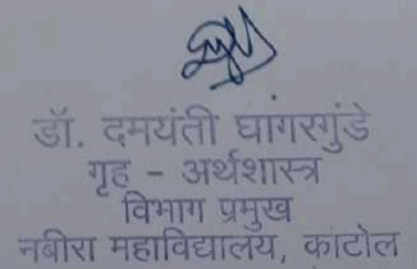 डॉ. दमयंती घांगरगुंडे
गृह - अर्थशास्त्र
विभाग प्रमुख
नबीरा महाविद्यालय, काटोल